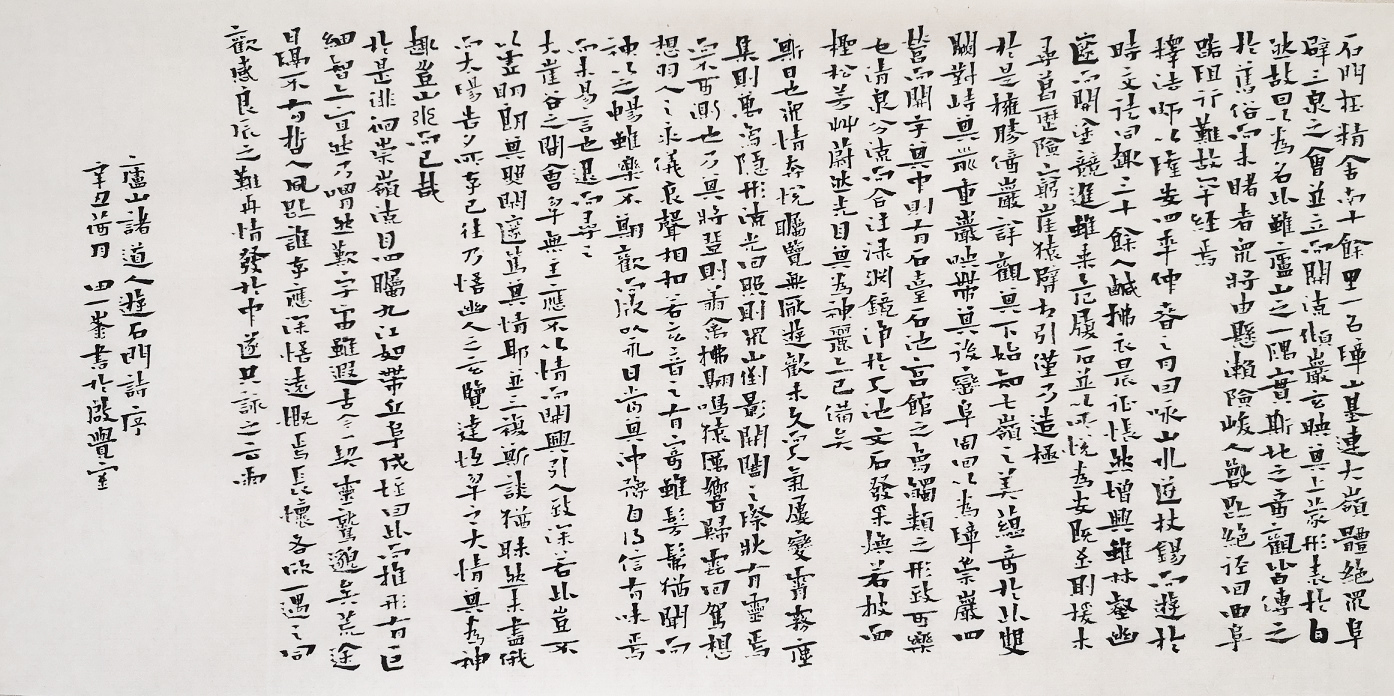 石門在精舍南十餘里一名障山基連大嶺體絕眾阜
辟三泉之會並立而開流傾巖玄映其上蒙形表於自
然故因以為名此雖廬山之一隅實斯地之奇觀皆傳之
於舊俗而未睹者眾將由懸瀨險峻人獸跡絕逕回曲阜
路阻行難故罕經焉
釋法師以隆安四年仲春之月因咏山水遂杖錫而遊於
時交徒同趣三十餘人咸拂衣晨征悵然增興雖林壑幽
邃而開塗競進雖乘危履石並以所悅為安既至則援木
尋葛歷險窮崖猿臂相引僅乃造極
於是擁勝倚巖詳觀其下始知七嶺之美蘊奇於此雙
闕對峙其前重巖映帶其後巒阜周回以為障崇巖四
營而開宇其中則有石臺石池宮館之象觸類之形致可樂
也清泉分流而合注淥淵鏡淨於天池文石發采煥若披面
檉松芳艸蔚然光目其為神麗亦已備矣
斯日也眾情奔悅矚覽無厭遊歡未久而天氣屢變霄霧塵
集則萬象隱形流光回照則眾山倒影開闔之際狀有靈焉
而不可測也乃其將登則翔禽拂翮鳴猿厲響歸雲回駕想
想羽人之來儀哀聲相和若玄音之有寄雖髣髴猶聞而
神以之暢雖樂不期歡而欣以永日當其沖豫自得信有味焉
而未易言也退而尋之
夫崖谷之間會物無主應不以情而開興引致深若此豈不
以虛明朗其照閑邃篤其情耶並三複斯談猶昧然未盡俄
而太陽告夕所存已往乃悟幽人之玄覽達恆物之大情其為神
趣豈山水而已哉
於是徘徊崇嶺流目四矚九江如帶丘阜成垤因此而推形有巨
細智亦宜然乃喟然歎宇宙雖遐古今一契靈鷲邈矣荒途
日隔不有哲人風跡誰存應深悟遠慨焉長懷各欣一遇之同
歡感良辰之難再情發於中遂共詠之云爾
廬山諸道人遊石門詩序
辛丑酉月四一峯書於啟覺室